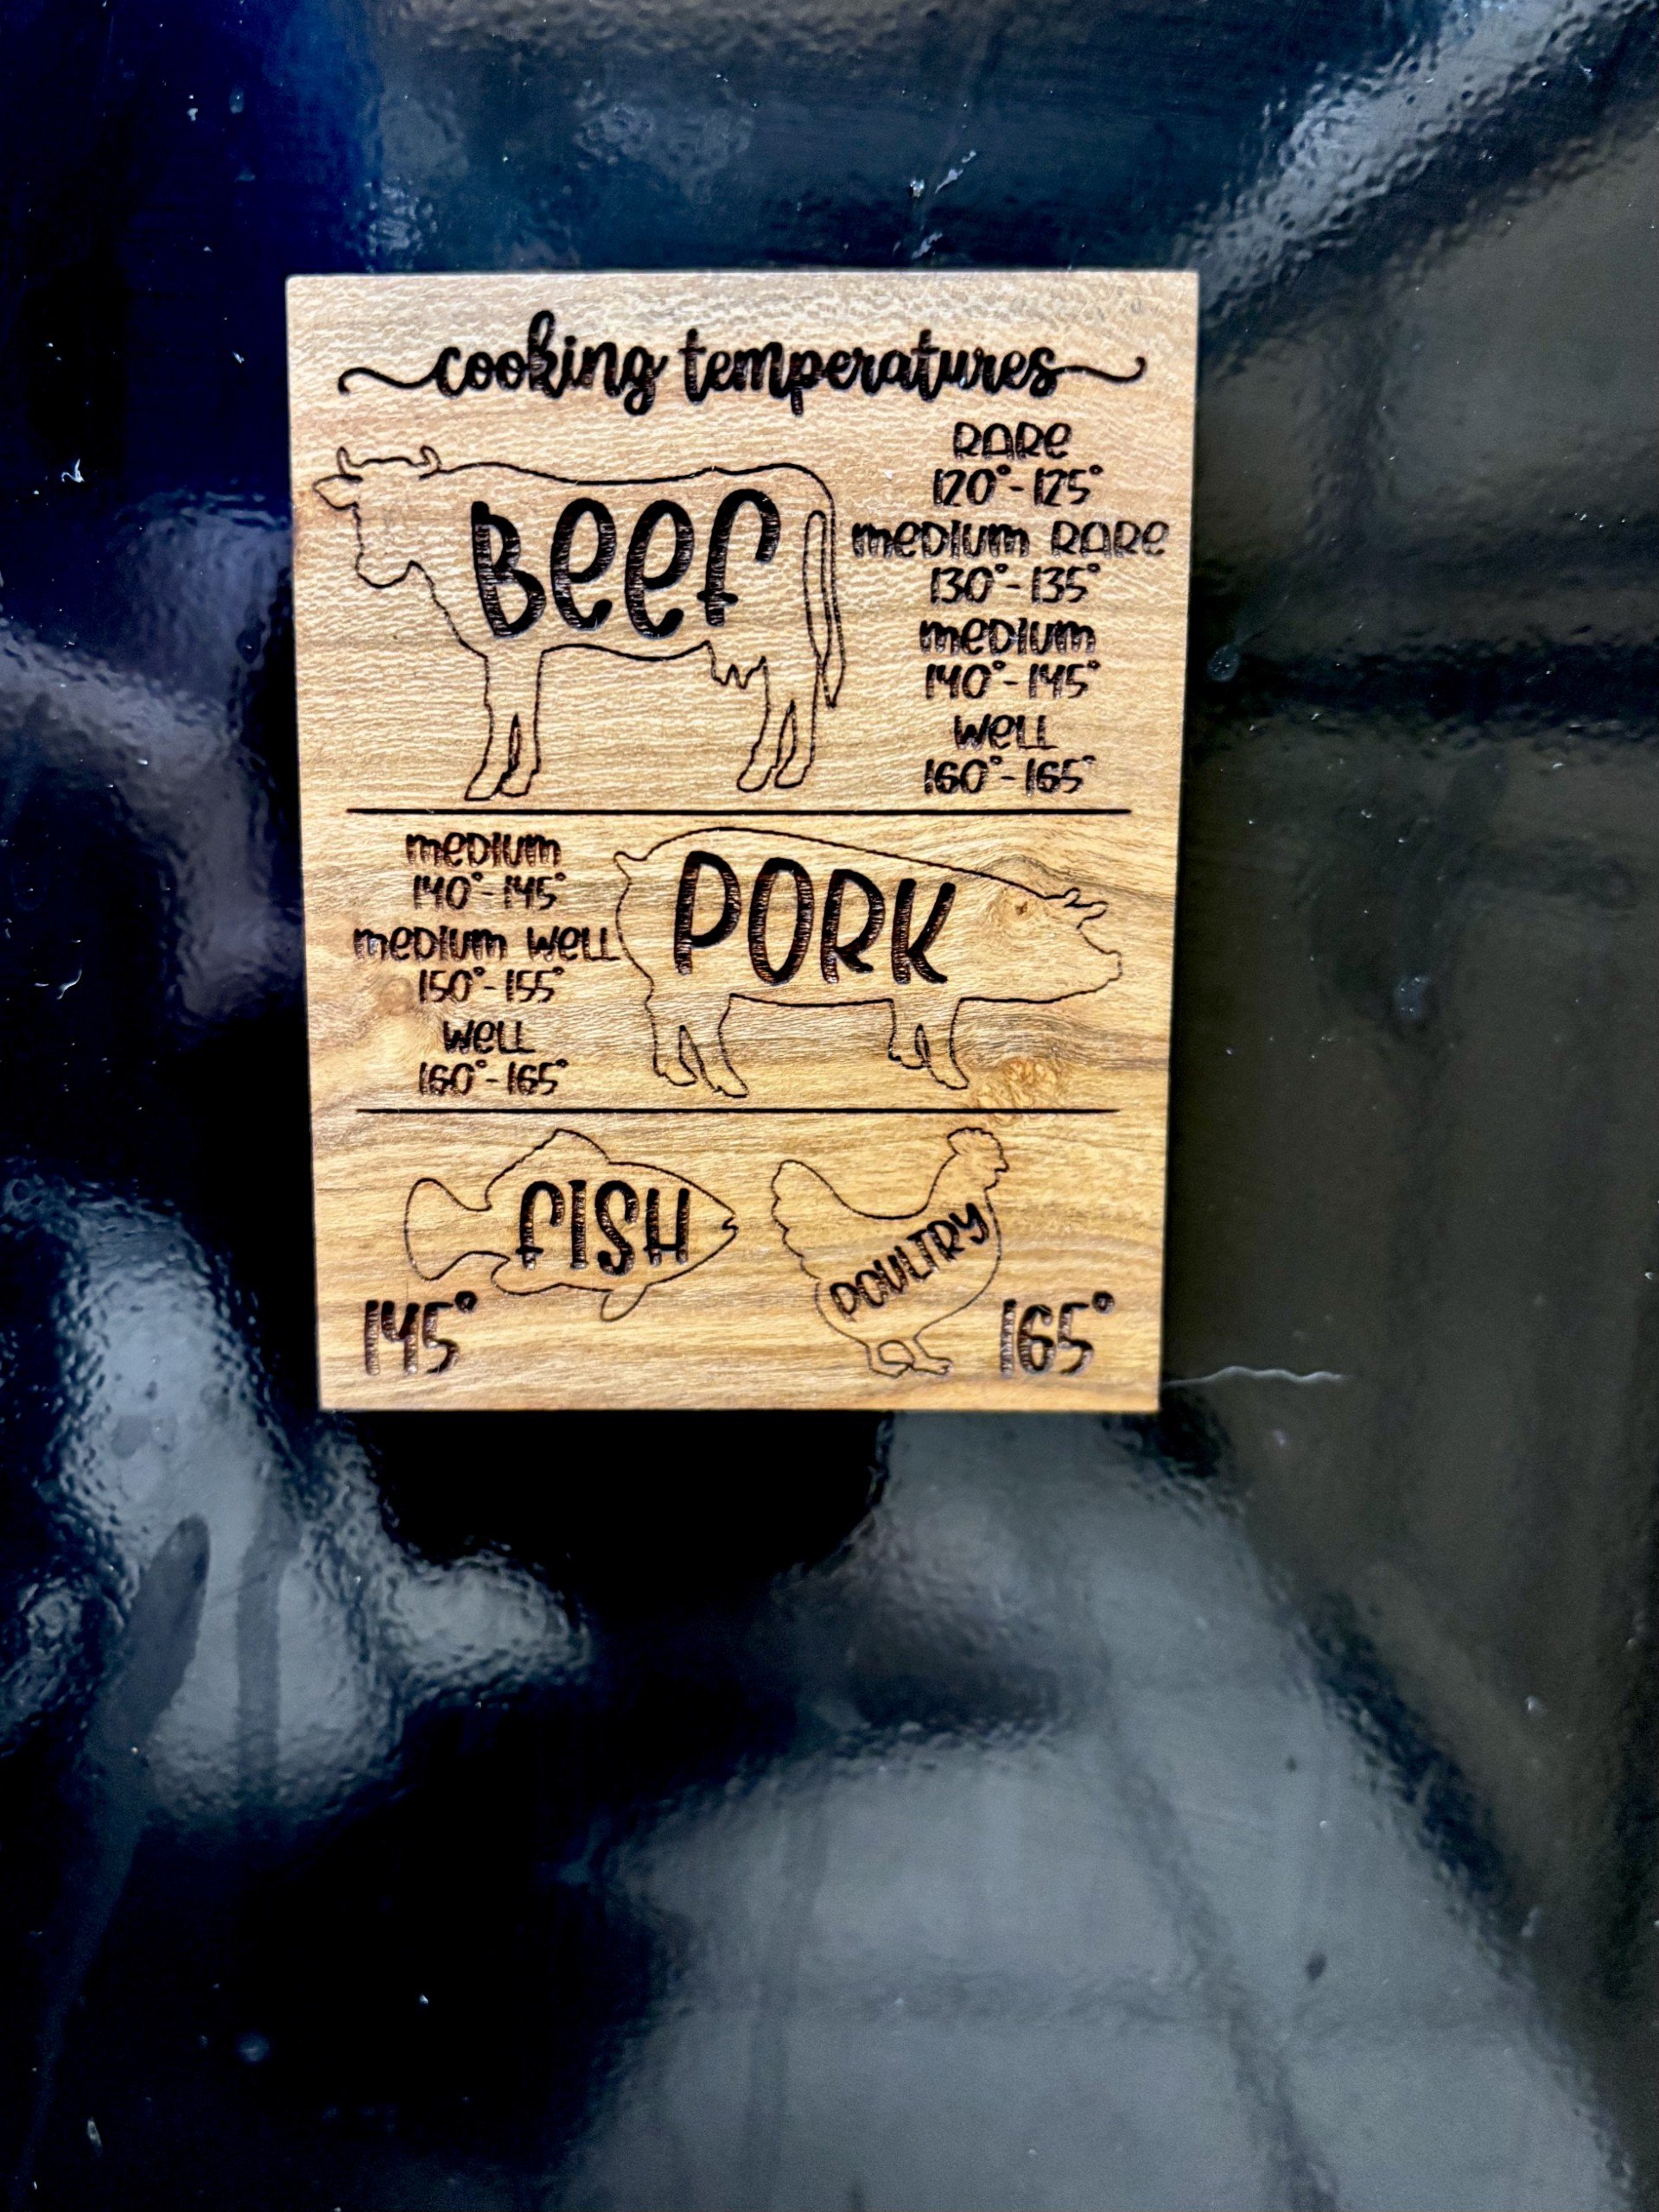 cooking temperatures
Beef
RARe
120°-125°
meDIUm RARe
130°-135°
meDIUm
140°-145°
WeLL
160°-165°
meDIUm
140°-145°
meDIUm WeLL
150°-155°
WeLL
160°-165°
PORK
fISH
145°
POULTRY
165°